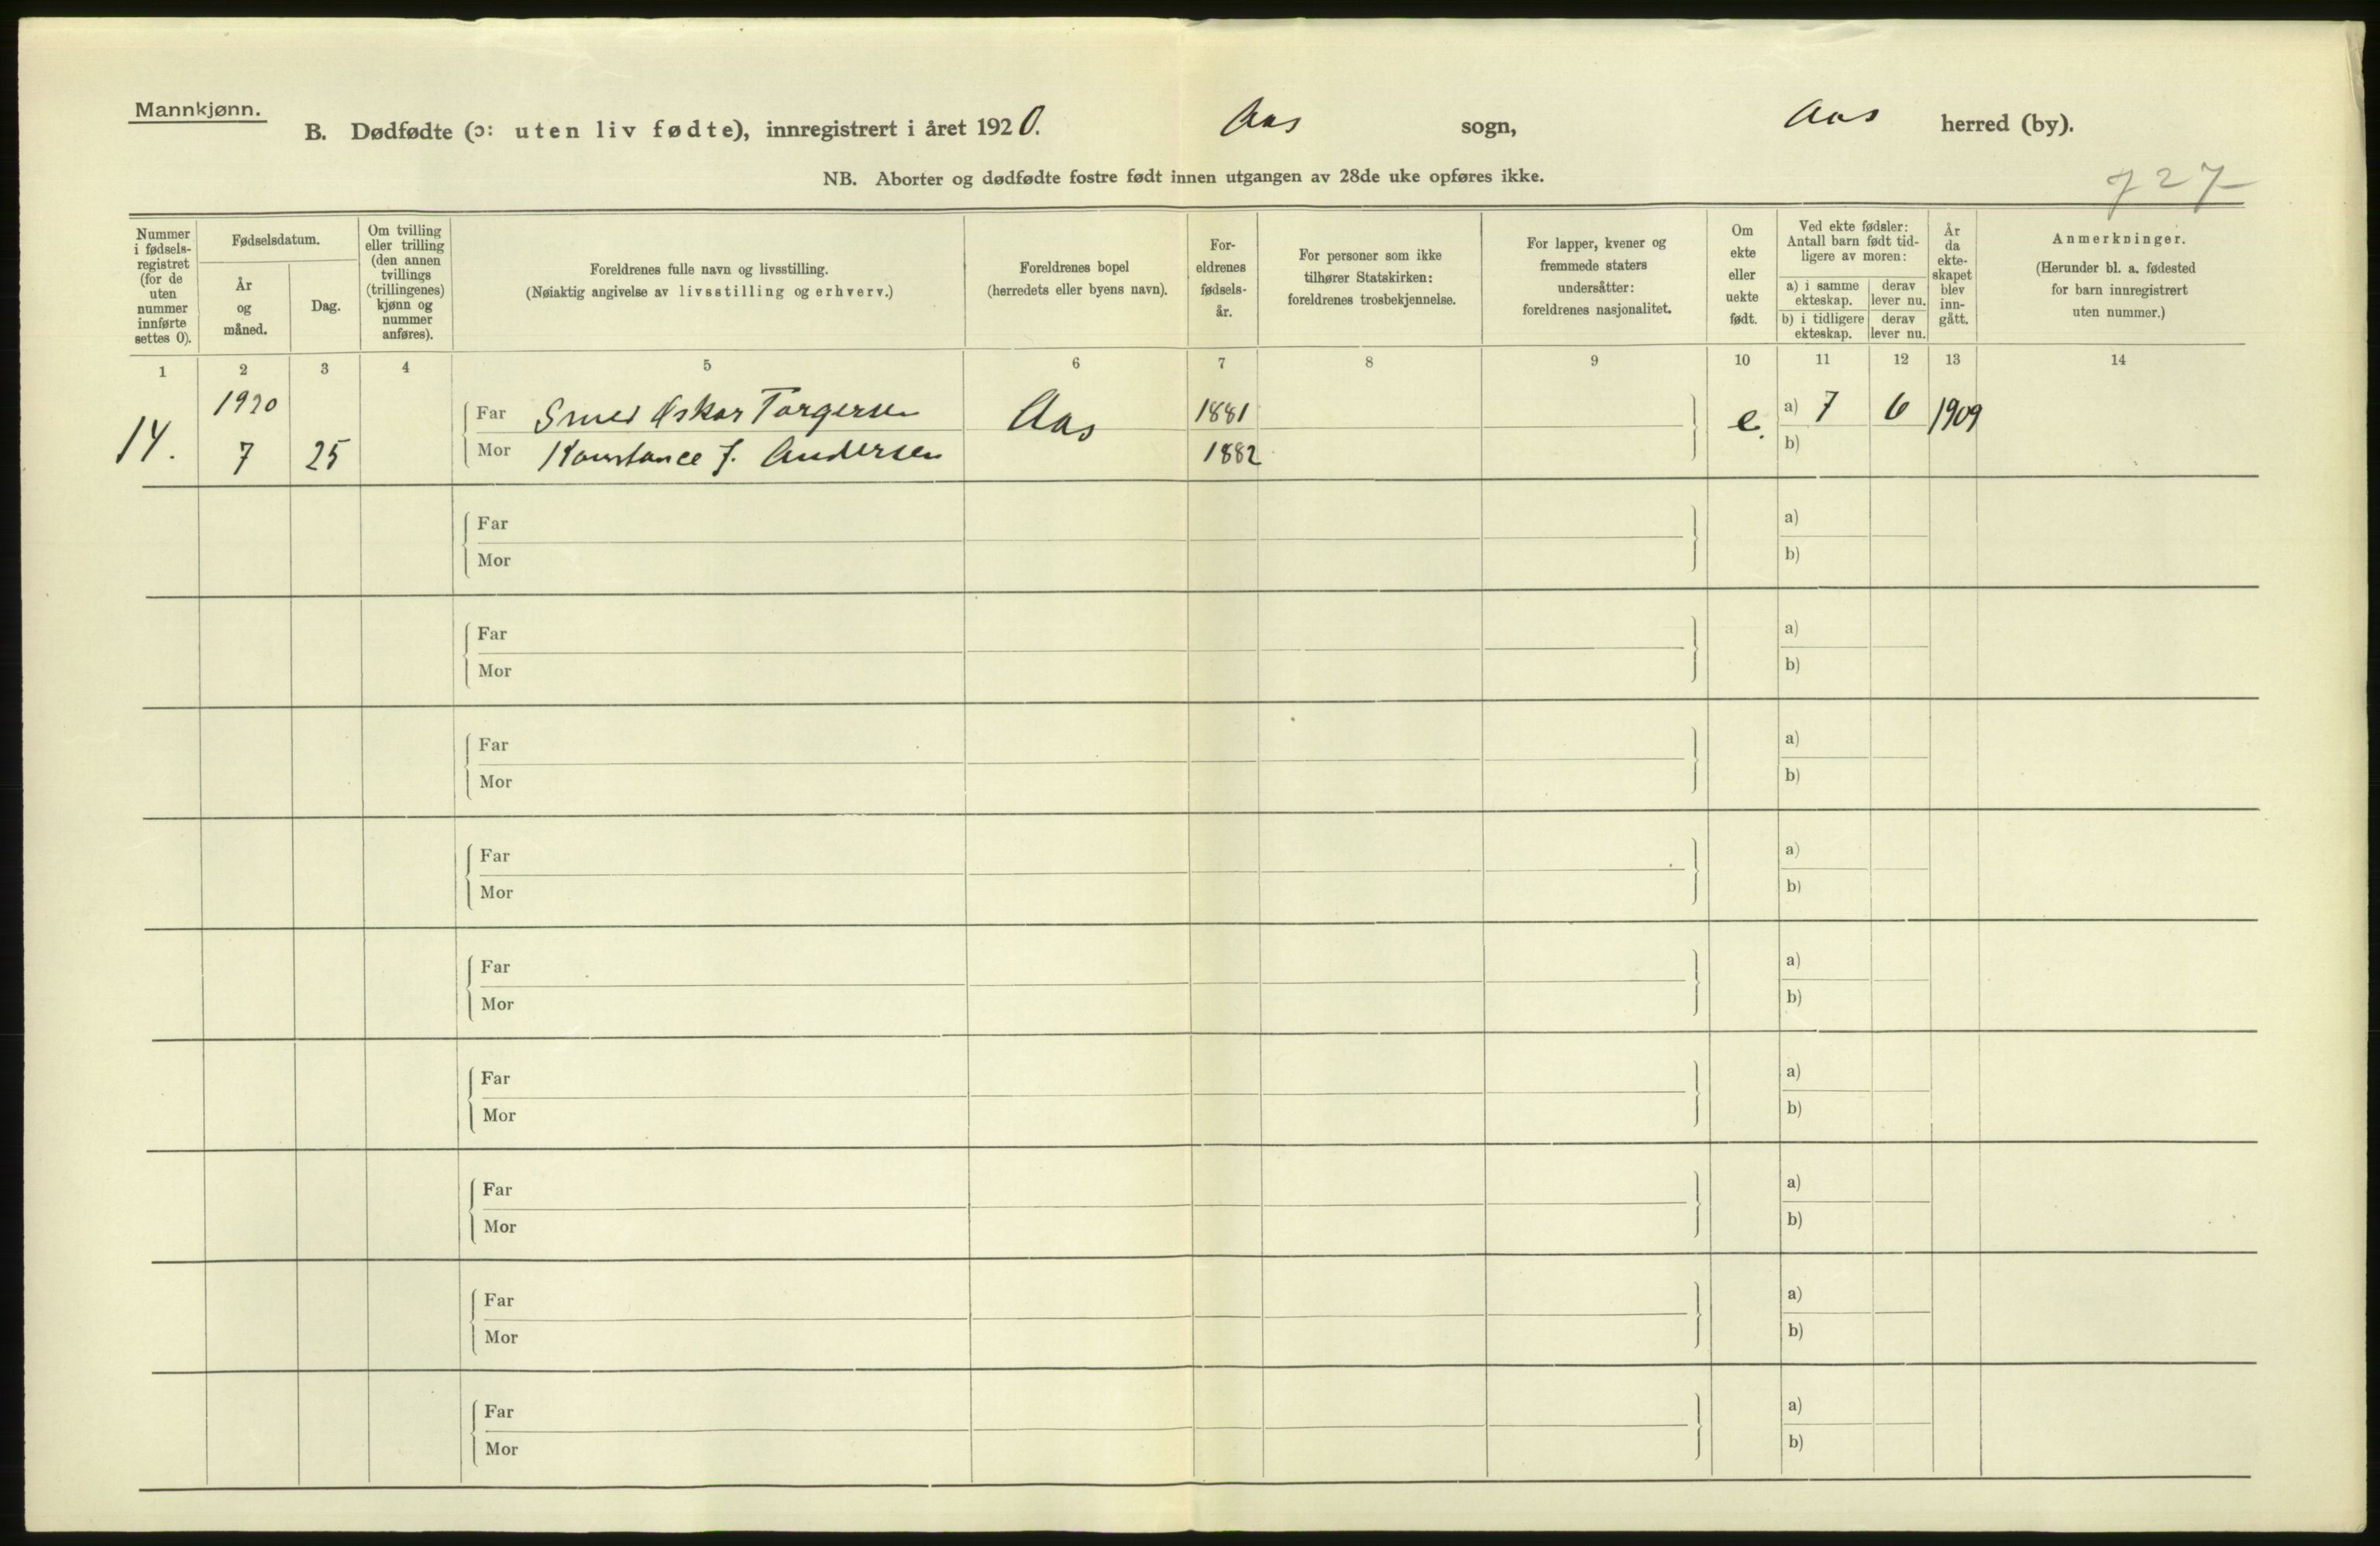 Mannkjønn.
B. Dødfødte (ɔ: uten liv fødte), innregistrert i året 1920. Aas sogn, Aas herred (by).
NB. Aborter og dødfødte fostre født innen utgangen av 28de uke opføres ikke.
727
Nummer i fødsels-registret (for de uten nummer innførte settes 0).
Fødselsdatum.
År og måned.
Dag.
Om tvilling eller trilling (den annen tvillings (trillingenes) kjønn og nummer anføres).
Foreldrenes fulle navn og livsstilling.
(Nøiaktig angivelse av livsstilling og erhverv.)
Foreldrenes bopel
(herredets eller byens navn).
For-eldrenes fødsels-år.
For personer som ikke tilhører Statskirken: foreldrenes trosbekjennelse.
For lapper, kvener og fremmede staters undersåtter: foreldrenes nasjonalitet.
Om ekte eller uekte født.
Ved ekte fødsler: Antall barn født tid-ligere av moren:
a) i samme ekteskap.
derav lever nu.
b) i tidligere ekteskap.
derav lever nu.
År da ekte-skapet blev inn-gått.
Anmerkninger.
(Herunder bl. a. fødested for barn innregistrert uten nummer.)
1 2 3 4 5 6 7 8 9 10 11 12 13 14
1920
14. 7 25
Far Smed Oskar Torgersen Aas 1881 e. a) 7 6 1909
Mor Konstance J. Andersen 1882 b)
Far a)
Mor b)
Far a)
Mor b)
Far a)
Mor b)
Far a)
Mor b)
Far a)
Mor b)
Far a)
Mor b)
Far a)
Mor b)
Far a)
Mor b)
Far a)
Mor b)